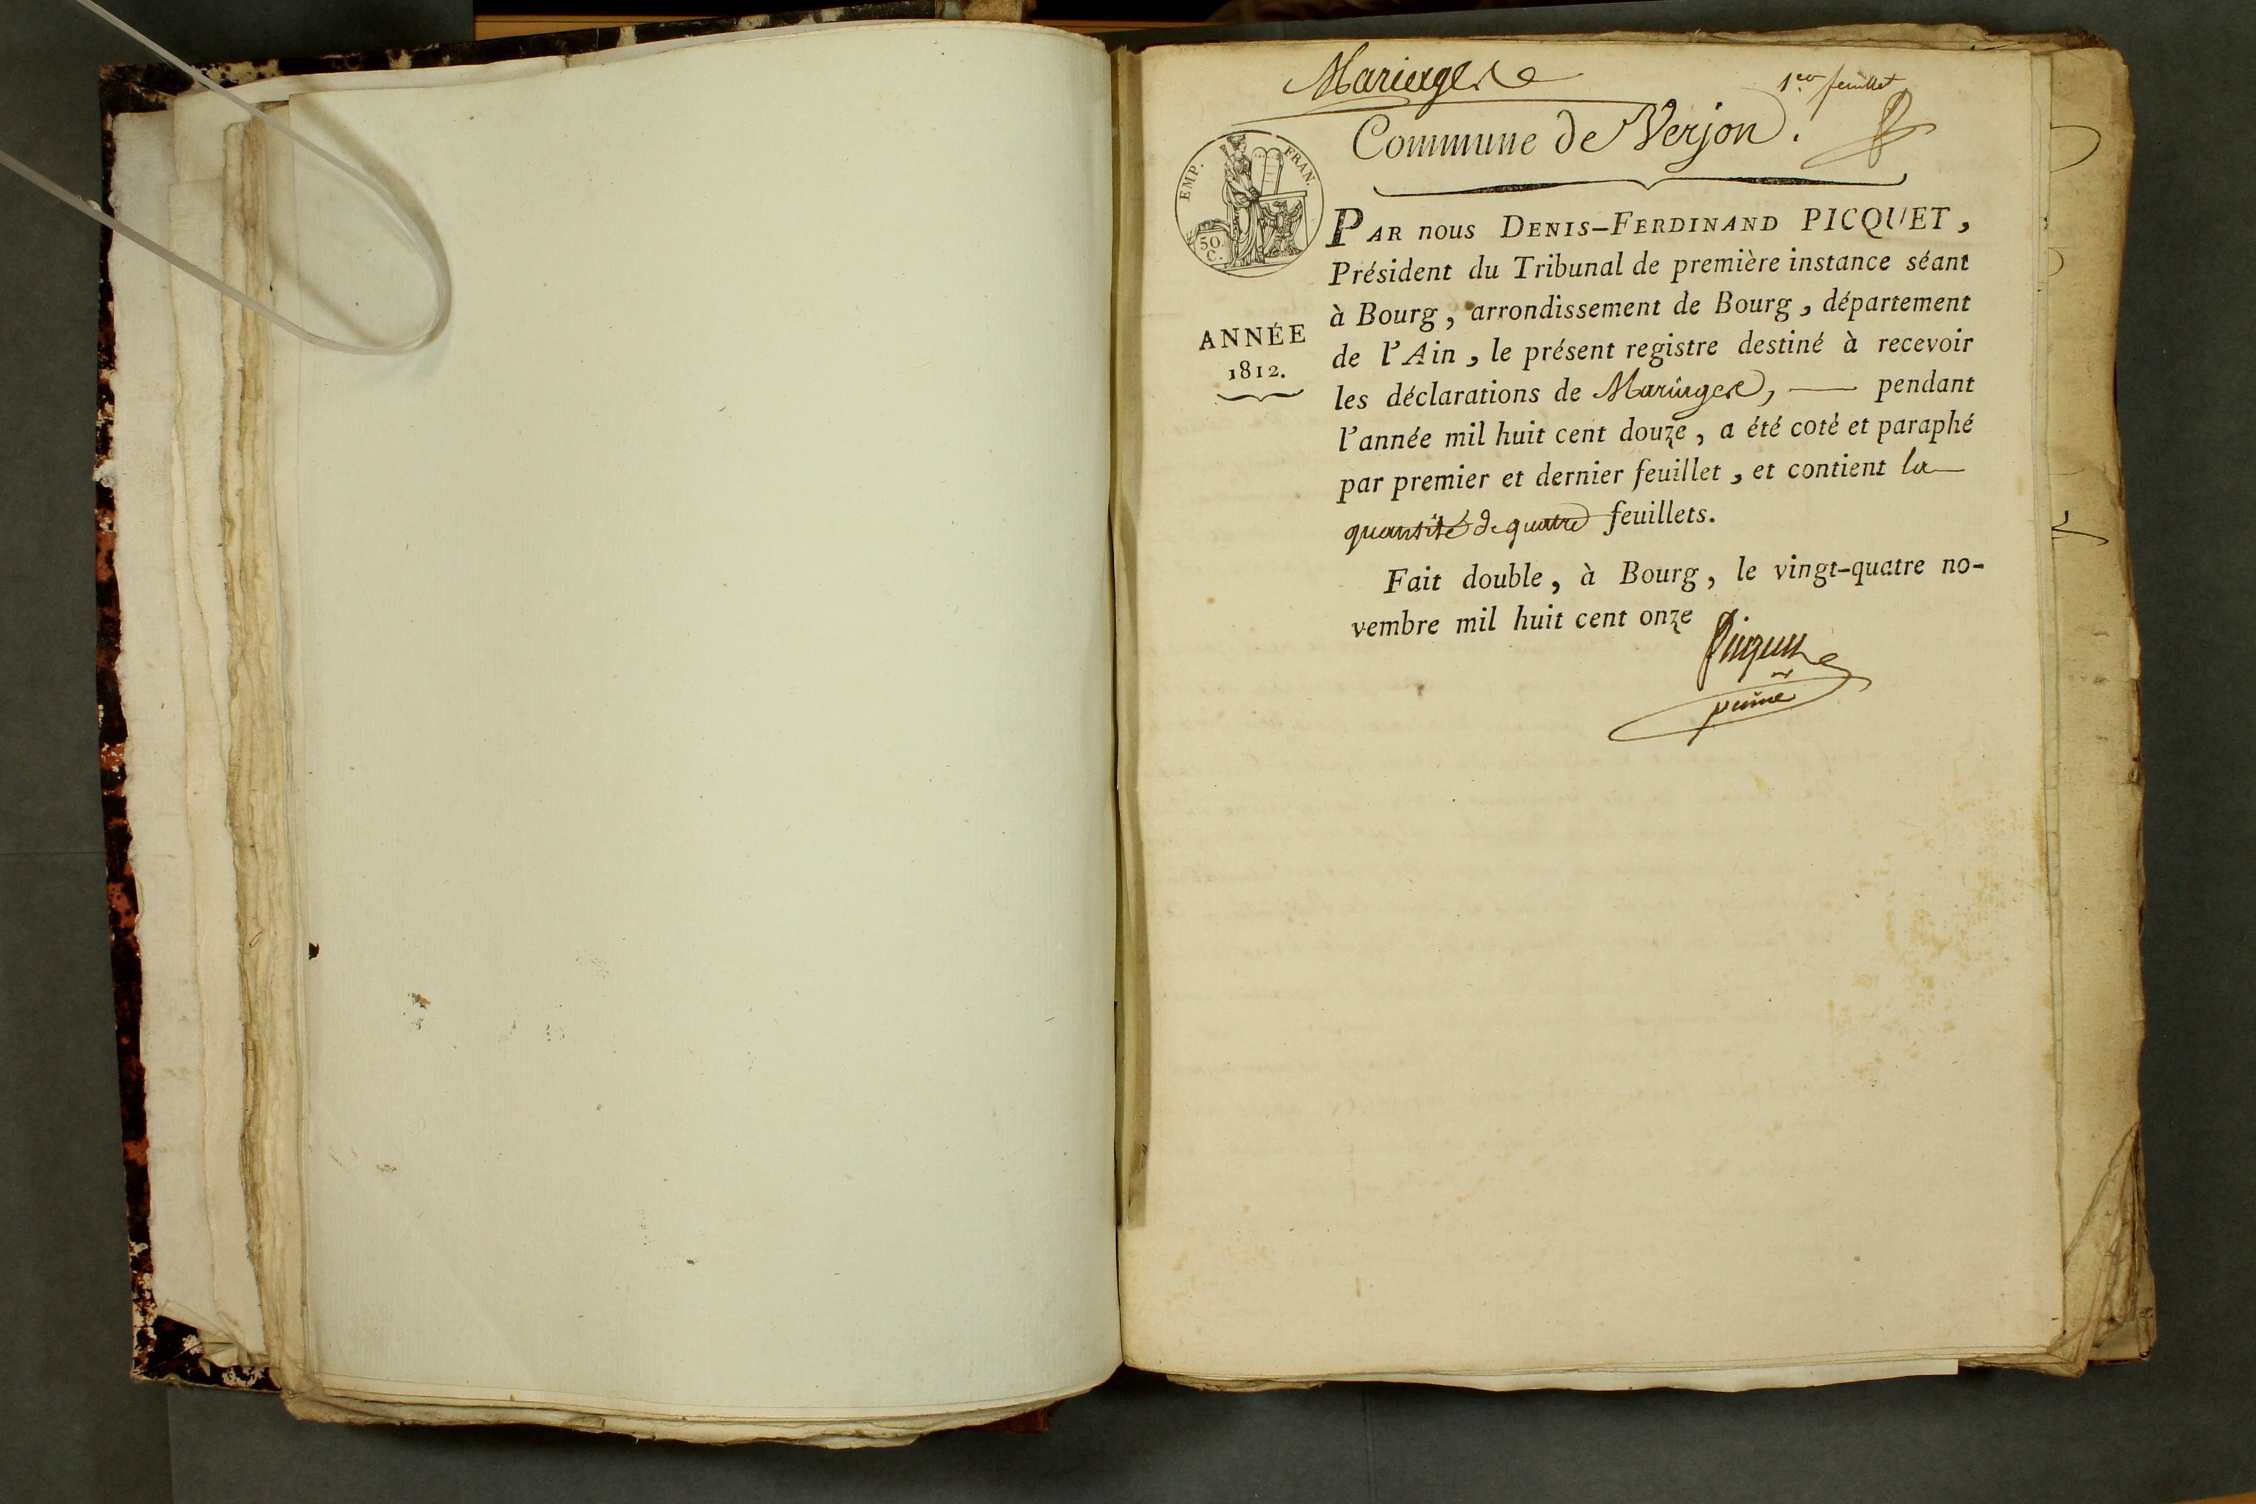 Mariages
1.er feuillet
Commune de Verjon.
EMP. FRAN.
50. C.
ANNÉE
1812.
PAR nous DENIS-FERDINAND PICQUET,
Président du Tribunal de première instance séant
à Bourg, arrondissement de Bourg, département
de l'Ain, le présent registre destiné à recevoir
les déclarations de Mariages, — pendant
l'année mil huit cent douze, a été coté et paraphé
par premier et dernier feuillet, et contient la
quantité de quatre feuillets.
Fait double, à Bourg, le vingt-quatre no-
vembre mil huit cent onze
Picquet